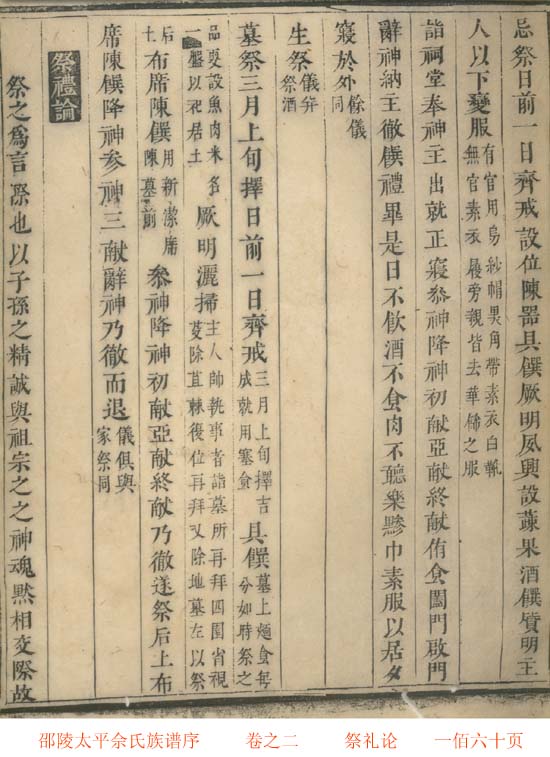 忌祭日前一日齊戒設位陳器具饌厥明夙興設蔬果酒饌質明主
人以下變服有官用烏紗帽黑角帶素衣白靴無官素衣履旁親皆去華餙之服
詣祠堂奉神主出就正寢叅神降神初献亞献終献侑食闔門啟門
辭神納主徹饌禮畢是日不飲酒不食肉不聽樂黪巾素服以居夕
寢於外餘儀同
生祭儀弁祭酒
墓祭三月上旬擇日前一日齊戒三月上旬擇吉成就用塞食具饌墓上每分如時祭之
品更設魚肉米各一盤以祀居土厥明灑掃主人帥執事者詣墓所再拜四圍省視芟除苴棘後位再拜又除地墓左以祭
后土布席陳饌用新潔席陳墓前叅神降神初献亞献終献乃徹遂祭后土布
席陳饌降神参神三献辭神乃徹而退儀俱與家祭同
祭禮論
祭之為言際也以子孫之精誠與祖宗之之神魂黙相交際故
邵陵太平余氏族谱序 卷之二 祭礼论 一佰六十页